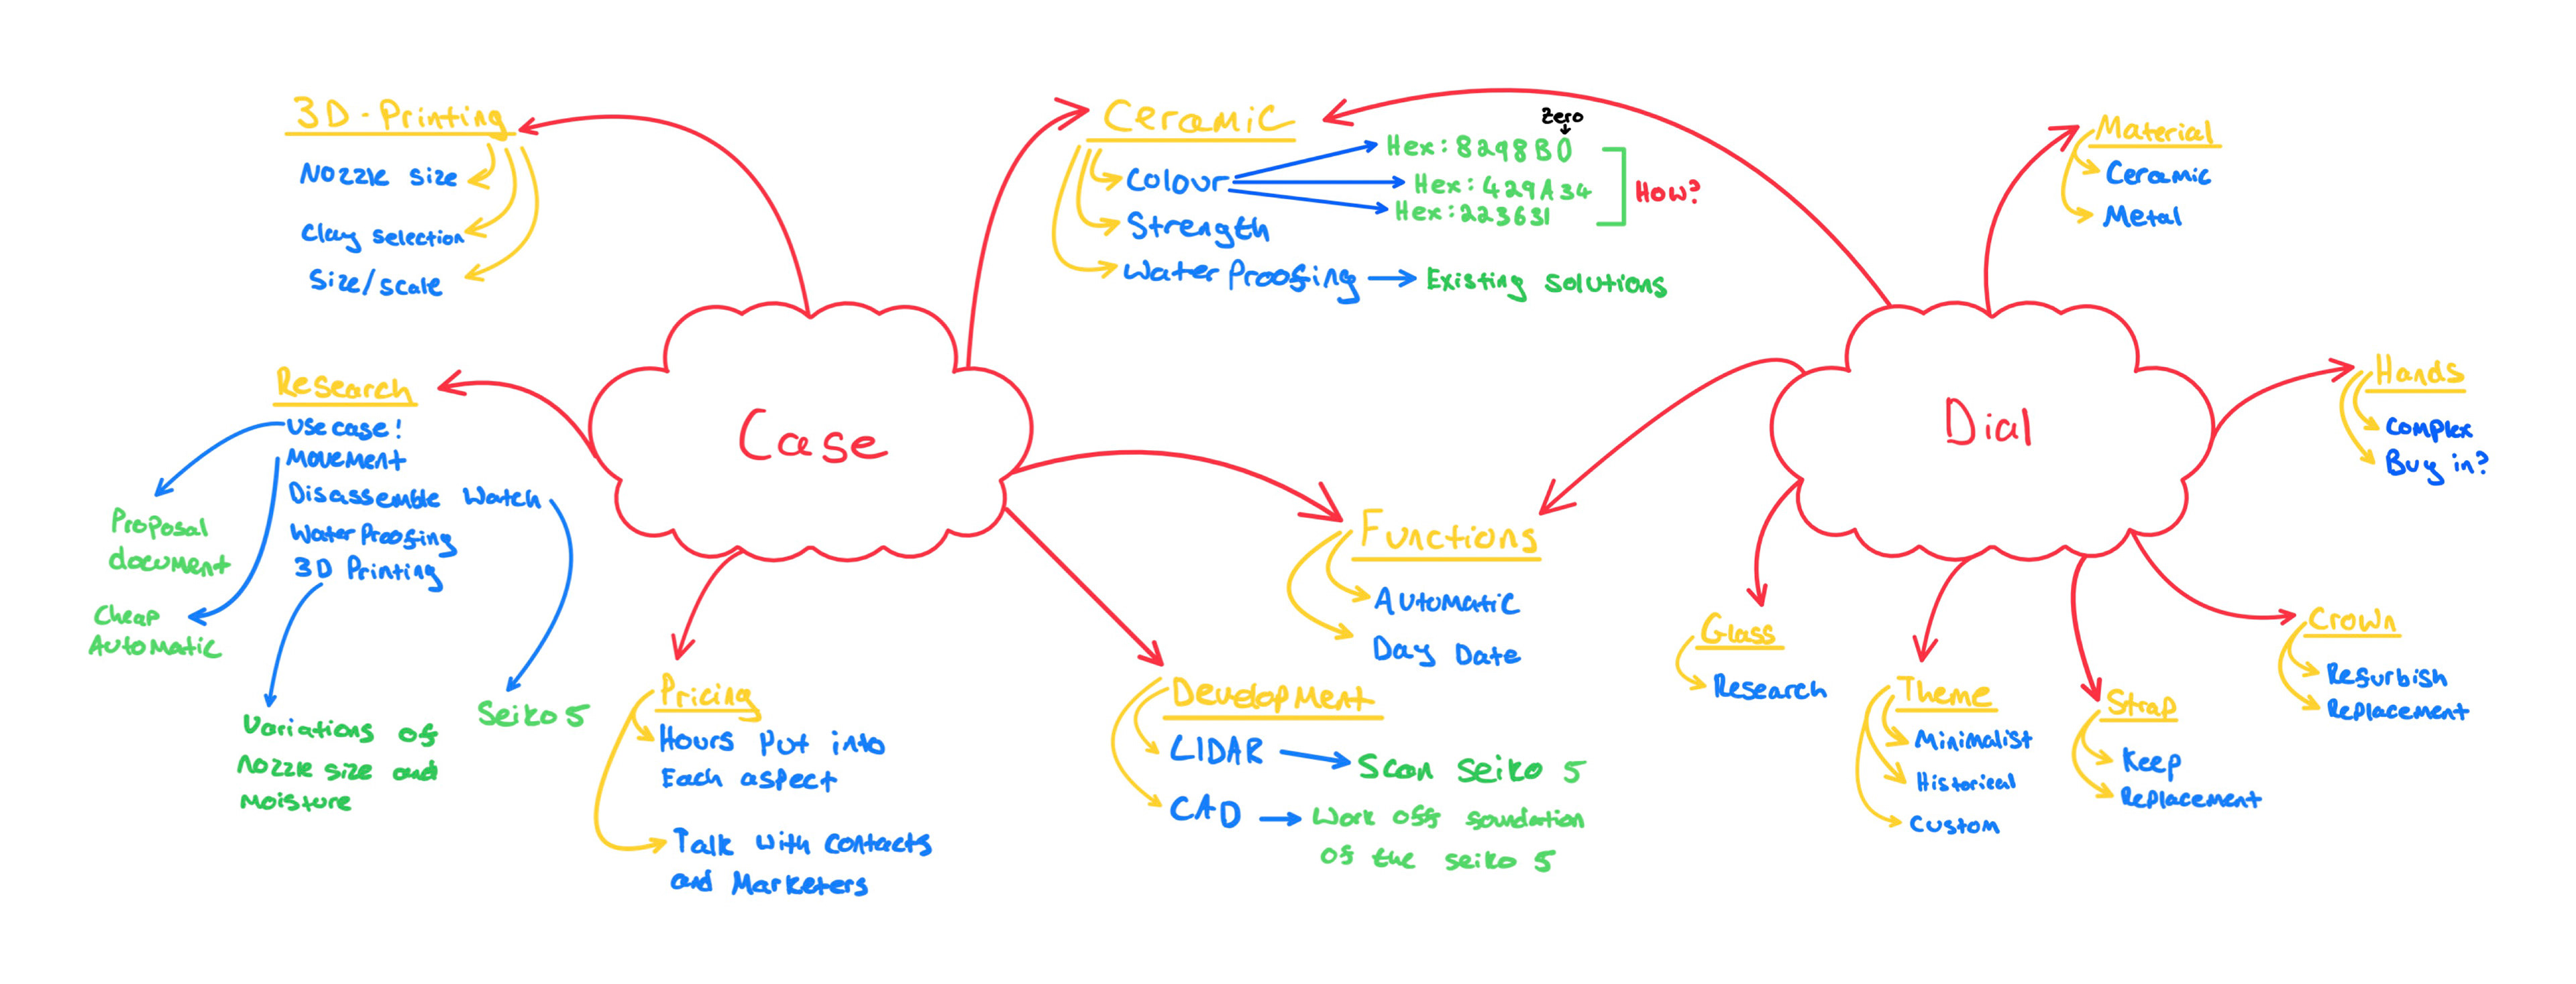 3D-Printing
Nozzle size
Clay selection
Size/scale
Ceramic
Colour
zero
Hex: 8298B0
Hex: 429A34
Hex: 223631
How?
Strength
Waterproofing
Existing solutions
Material
Ceramic
Metal
Research
Use case!
Movement
Disassemble Watch
Waterproofing
3D Printing
Proposal
document
Cheap
Automatic
Variations of
Nozzle size and
Moisture
Seiko 5
Case
Dial
Hands
Complex
Buy in?
Functions
Automatic
Day Date
Pricing
Hours Put into
Each aspect
Talk with contacts
and Marketers
Development
LIDAR
Scan Seiko 5
CAD
Work off foundation
of the seiko 5
Glass
Research
Theme
Minimalist
Historical
Custom
Strap
Keep
Replacement
Crown
Refurbish
Replacement